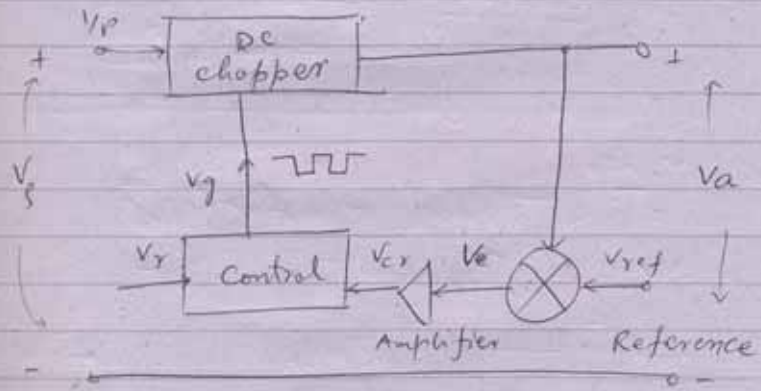 I/P
DC
chopper
+
+
Vs
Vg
Va
Vr
Control
Vcr
Ve
Vref
Amplifier
Reference
-
-